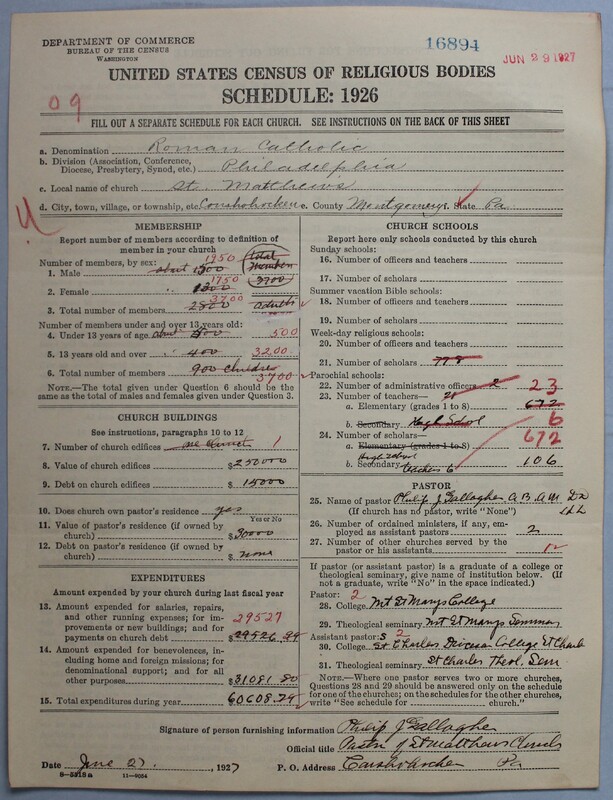 DEPARTMENT OF COMMERCE
BUREAU OF THE CENSUS
WASHINGTON
16894
JUN 29 1927
UNITED STATES CENSUS OF RELIGIOUS BODIES
SCHEDULE: 1926
09
FILL OUT A SEPARATE SCHEDULE FOR EACH CHURCH. SEE INSTRUCTIONS ON THE BACK OF THIS SHEET
a. Denomination Roman Catholic
b. Division (Association, Conference, Diocese, Presbytery, Synod, etc.) Philadelphia
c. Local name of church St. Matthews
d. City, town, village, or township, etc. Conshohocken e. County Montgomery f. State Pa.
MEMBERSHIP
Report number of members according to definition of
member in your church
Number of members, by sex:
1. Male about 1500 1950 total members 3700
2. Female " 1300 1750
3. Total number of members 2800 3700 adults
Number of members under and over 13 years old:
4. Under 13 years of age about 500 500
5. 13 years old and over " 400 3200
6. Total number of members 900 children 3700
NOTE.—The total given under Question 6 should be
same as the total of males and females given under Question 3.
CHURCH BUILDINGS
See instructions, paragraphs 10 to 12
7. Number of church edifices one church 1
8. Value of church edifices $250000
9. Debt on church edifices $15000
10. Does church own pastor's residence yes
Yes or No
11. Value of pastor's residence (if owned by
church) $30000
12. Debt on pastor's residence (if owned by
church) $none
EXPENDITURES
Amount expended by your church during last fiscal year
13. Amount expended for salaries, repairs,
and other running expenses; for im-
provements or new buildings; and for
payments on church debt 29527 $29526.99
14. Amount expended for benevolences, in-
cluding home and foreign missions; for
denominational support; and for all
other purposes $31081.80
15. Total expenditures during year 60608.79
CHURCH SCHOOLS
Report here only schools conducted by this church
Sunday schools:
16. Number of officers and teachers
17. Number of scholars
Summer vacation Bible schools:
18. Number of officers and teachers
19. Number of scholars
Week-day religious schools:
20. Number of officers and teachers
21. Number of scholars 778
Parochial schools:
22. Number of administrative officers 2 23
23. Number of teachers— 21
a. Elementary (grades 1 to 8) 672
b. Secondary High School 6
24. Number of scholars— 672
a. Elementary (grades 1 to 8)
High School
b. Secondary teachers 6 106
PASTOR
25. Name of pastor Philip J. Gallagher A.B. A.M.
(If church has no pastor, write "None")
26. Number of ordained ministers, if any, em-
ployed as assistant pastors 2
27. Number of other churches served by the
pastor or his assistants
If pastor (or assistant pastor) is a graduate of a college or
theological seminary, give name of institution below. (If
not a graduate, write "No" in the space indicated.)
Pastor: 2
28. College Mt St Marys College
29. Theological seminary Mt St Marys Seminary
Assistant pastor: s 2
30. College St Charles Diocesan College St Charles
31. Theological seminary St Charles Theol. Sem
NOTE.—Where one pastor serves two or more churches,
Questions 28 and 29 should be answered only on the schedule
for one of the churches; on the schedules for the other churches,
write "See schedule for church."
Signature of person furnishing information Philip J Gallagher
Official title Pastor of St Matthews Church
Date June 27, 1927 P. O. Address Conshohocken Pa
8—5318a 11—9054